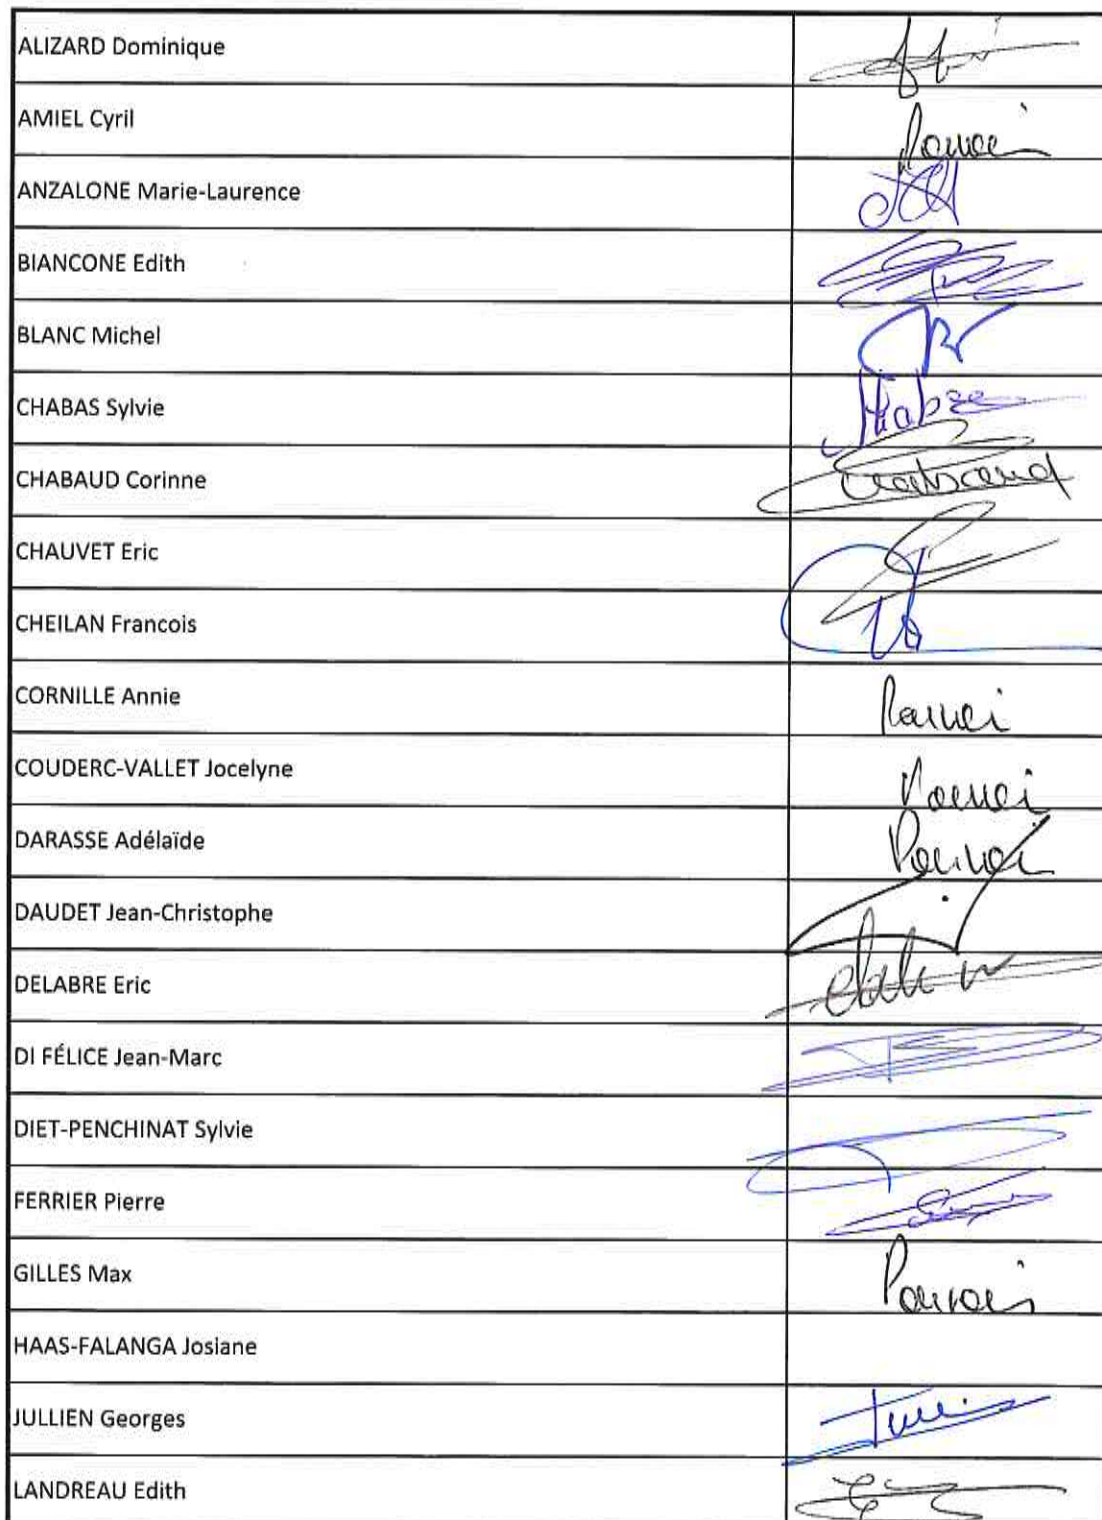 ALIZARD Dominique
AMIEL Cyril
Pouvoir
ANZALONE Marie-Laurence
BIANCONE Edith
BLANC Michel
CHABAS Sylvie
Chabas
CHABAUD Corinne
Chabaud
CHAUVET Eric
CHEILAN Francois
CORNILLE Annie
Pouvoir
COUDERC-VALLET Jocelyne
Pouvoir
DARASSE Adélaïde
Pouvoir
DAUDET Jean-Christophe
DELABRE Eric
DI FÉLICE Jean-Marc
DIET-PENCHINAT Sylvie
FERRIER Pierre
GILLES Max
Pouvoir
HAAS-FALANGA Josiane
JULLIEN Georges
LANDREAU Edith